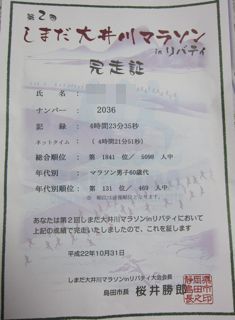 第2回
しまだ大井川マラソン
inリバティ
完走証
氏名:
ナンバー: 2036
記録: 4時間23分35秒
ネットタイム: (4時間21分51秒)
総合順位: 第 1841 位/ 5098 人中
年代別: マラソン男子60歳代
年代別順位: 第 131 位/ 469 人中
あなたは第2回しまだ大井川マラソンinリバティにおいて
上記の成績で完走いたしましたので、これを証します
平成22年10月31日
しまだ大井川マラソンinリバティ大会会長
島田市長 桜井勝郎